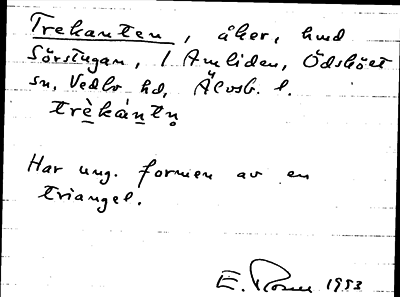 Trekanten, åker, hmd
Sörstugan, 1 Amliden, Ödskölt
sn, Vedbo hd, Älvsb. l.
trèkántn̥
Har ung. formen av en
triangel.
E. Rosen 1953